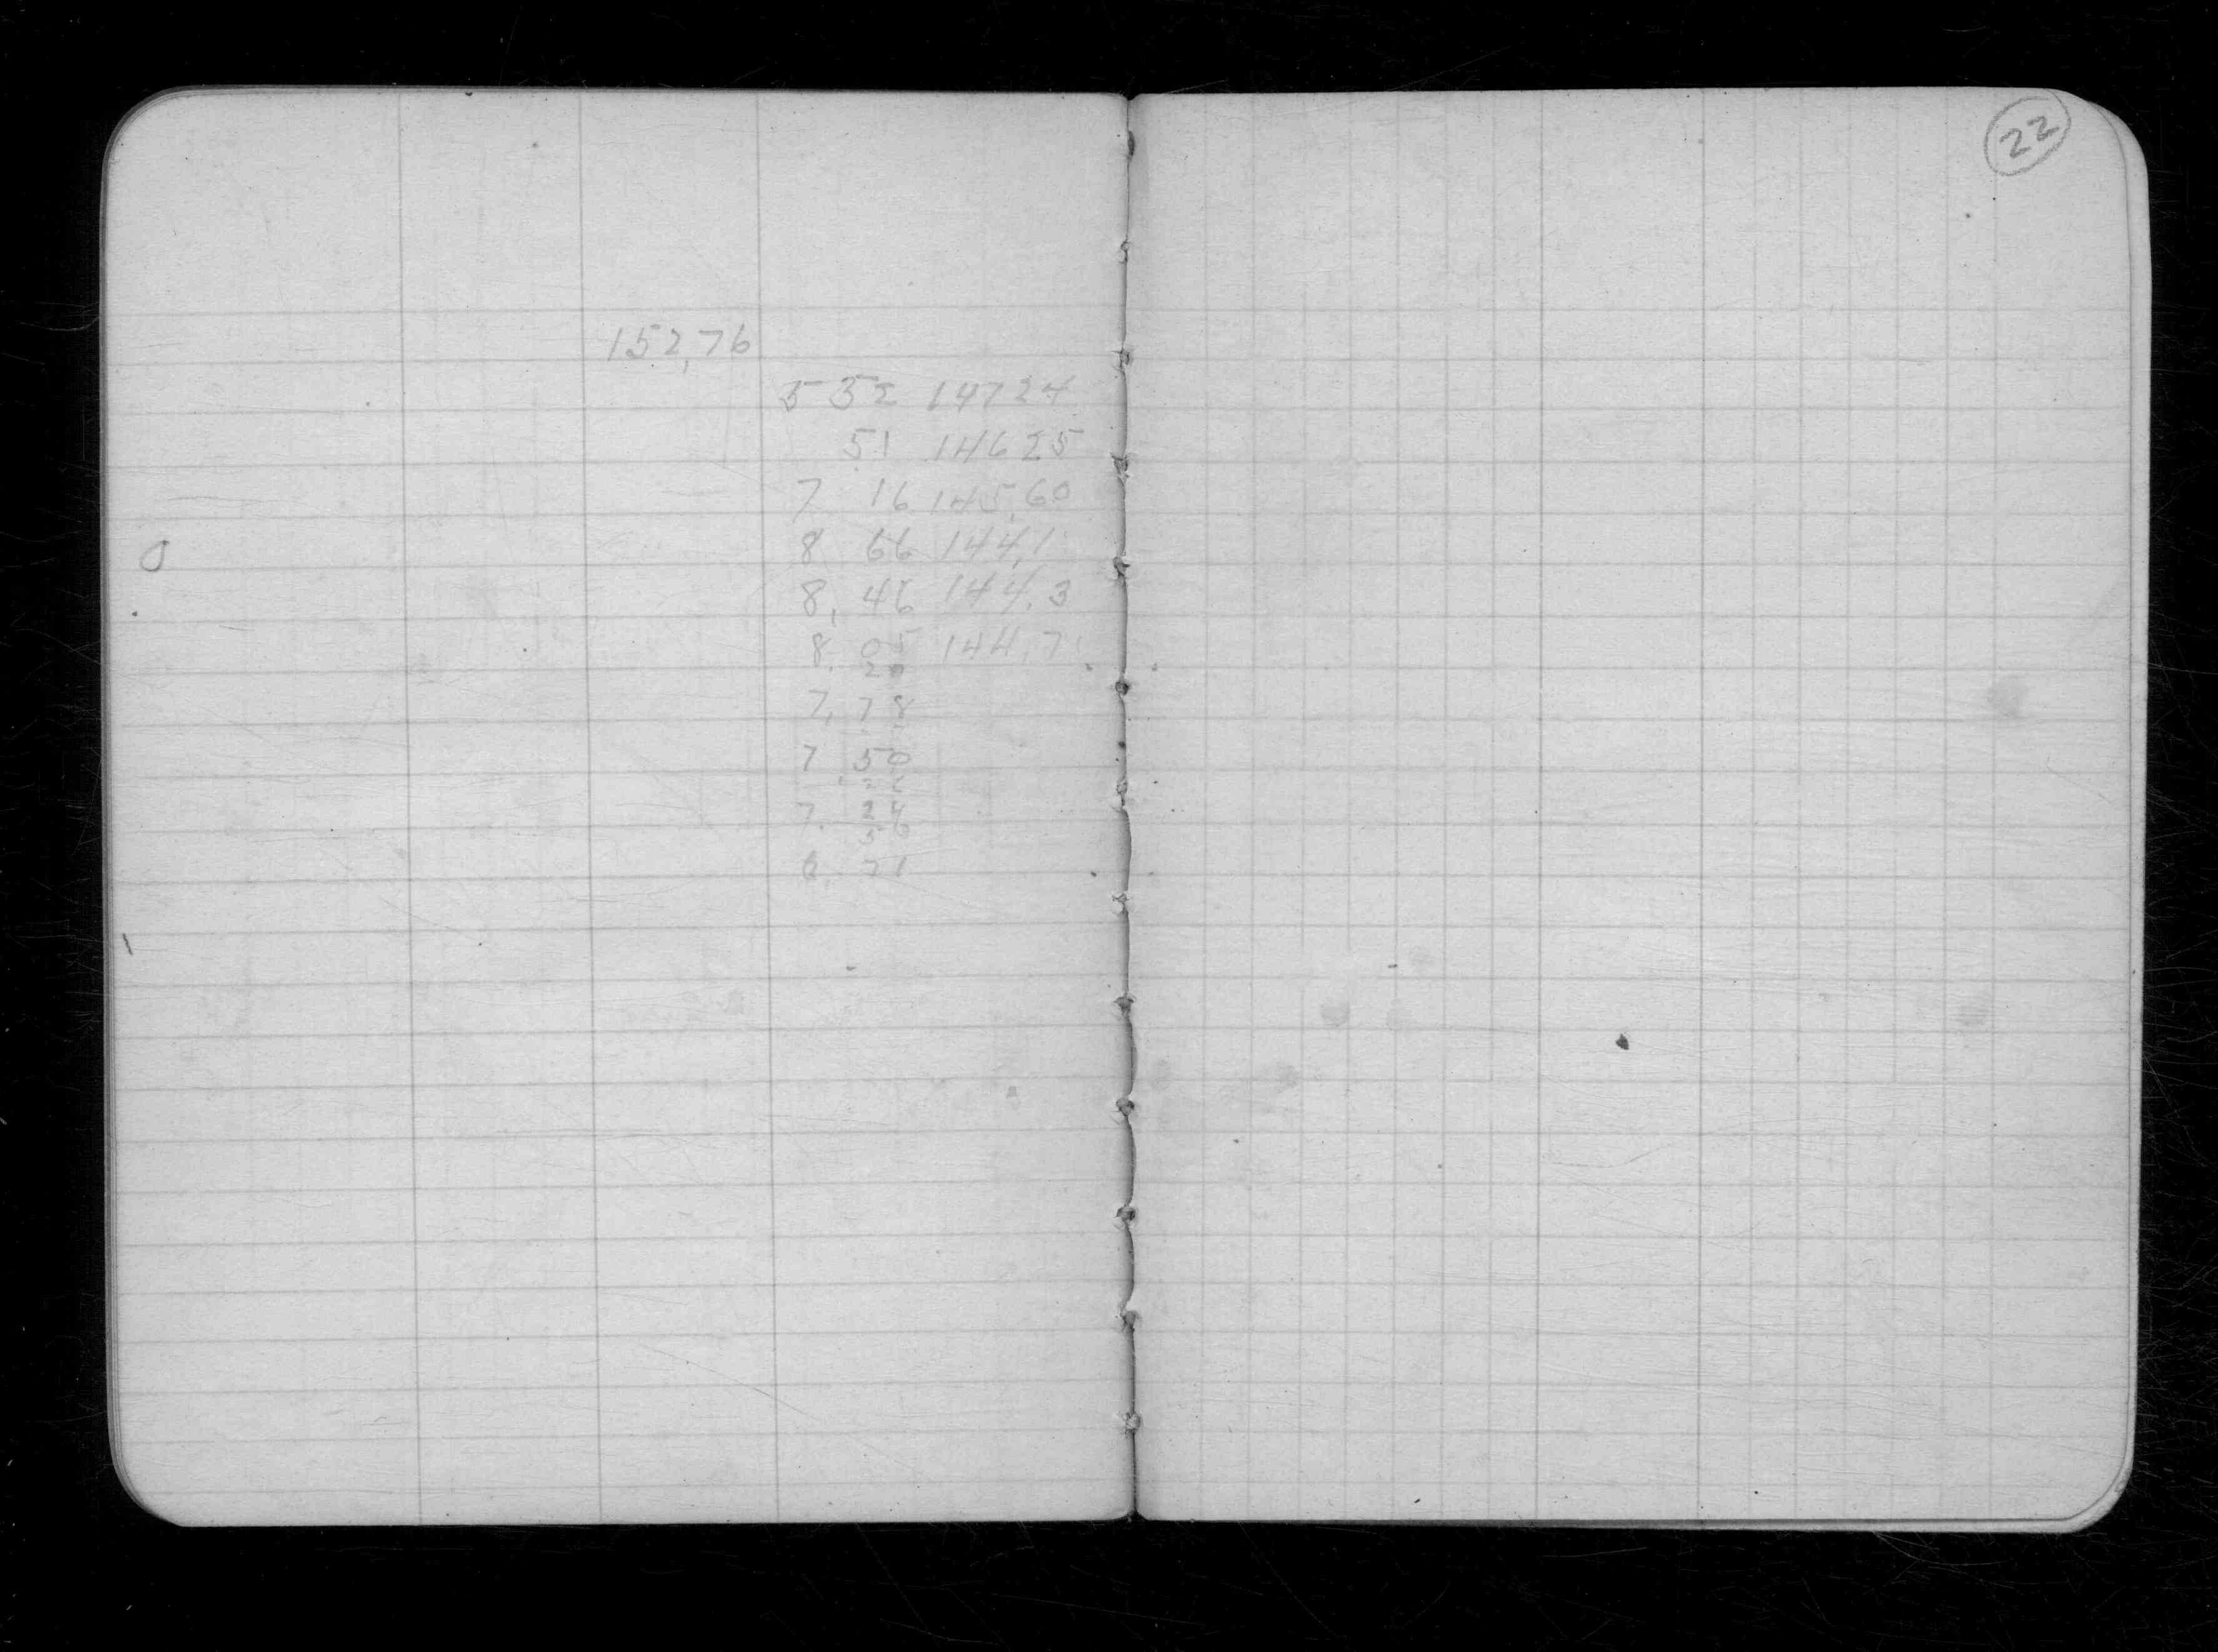 152,76
5 52 147 24
51 146 25
7 16 145,60
8 66 144,1
8, 46 144,3
8. 05 144,7
20
7, 78
7 50
7. 24
56
6, 71
0
22